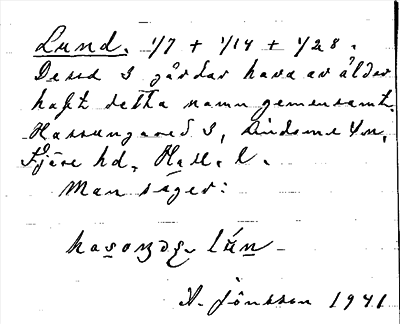 Lund. 1/7 + 1/14 + 1/28.
Dessa 3 gårdar hava av ålder
haft detta namn gemensamt.
Hassungared S, Lindome sn,
Fjäre hd, Hall. l.
Man säger:
lún
A. Jönsson 1941